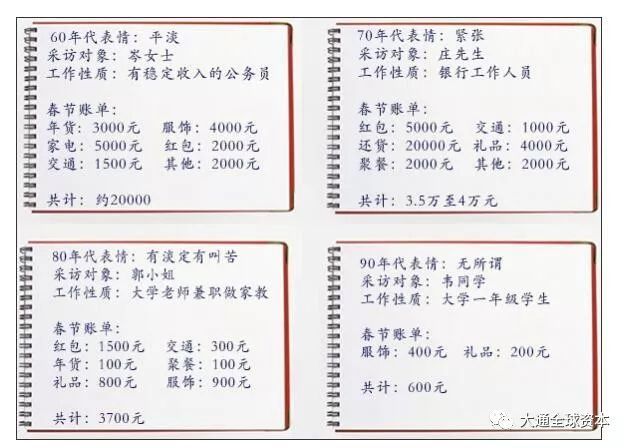 60年代表情：平淡
采访对象：岑女士
工作性质：有稳定收入的公务员
春节账单：
年货：3000元 服饰：4000元
家电：5000元 红包：2000元
交通：1500元 其他：2000元
共计：约20000
70年代表情：紧张
采访对象：庄先生
工作性质：银行工作人员
春节账单：
红包：5000元 交通：1000元
还贷：20000元 礼品：4000元
聚餐：2000元 其他：2000元
共计：3.5万至4万元
80年代表情：有淡定有叫苦
采访对象：郭小姐
工作性质：大学老师兼职做家教
春节账单：
红包：1500元 交通：300元
年货：100元 聚餐：100元
礼品：800元 服饰：900元
共计：3700元
90年代表情：无所谓
采访对象：韦同学
工作性质：大学一年级学生
春节账单：
服饰：400元 礼品：200元
共计：600元
大通全球资本